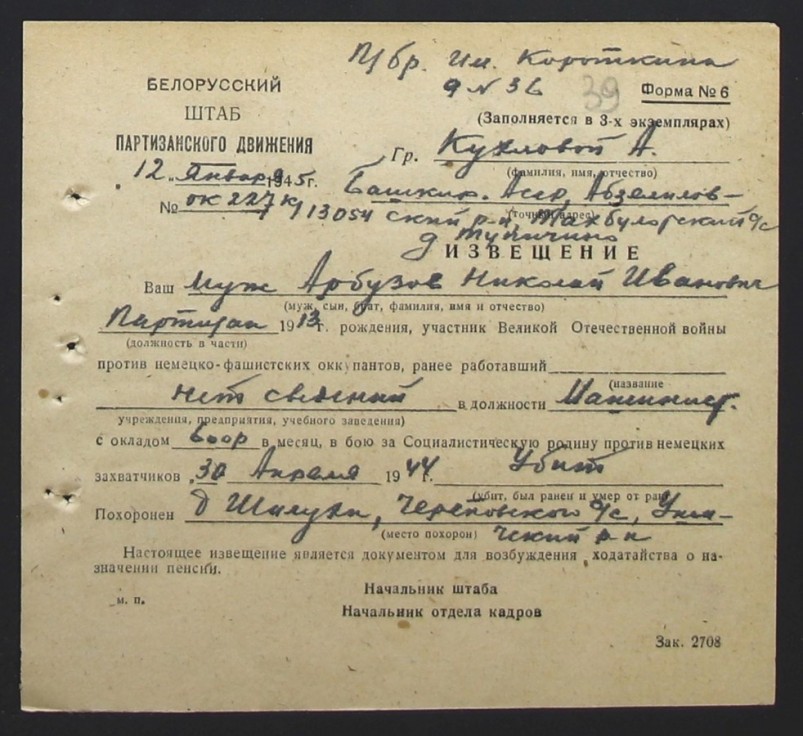 П/бр. Им. Короткина
д №36 39
Форма № 6
БЕЛОРУССКИЙ
ШТАБ
ПАРТИЗАНСКОГО ДВИЖЕНИЯ
(Заполняется в 3-х экземплярах)
Гр. Кухловой А.
(фамилия, имя, отчество)
„12„ Января 1945г.
Башкир. Асср, Абзелилов-
№ ок 227к/13054
ский р-н, с/с
(точный адрес)
д
ИЗВЕЩЕНИЕ
Ваш муж Арбузов Николай Иванович
(муж, сын, брат, фамилия, имя и отчество)
Партизан 1913г. рождения, участник Великой Отечественной войны
(должность в части)
против немецко-фашистских оккупантов, ранее работавший
(название
нет сведений в должности
учреждения, предприятия, учебного заведения)
с окладом 600р в месяц, в бою за Социалистическую родину против немецких
захватчиков „30 Апреля 1944г. Убит
(убит, был ранен и умер от ран)
Похоронен д Шилуки, с/с, Ушач-
(место похорон) ческий р-н
Настоящее извещение является документом для возбуждения ходатайства о на-
значении пенсии.
Начальник штаба
м. п.
Начальник отдела кадров
Зак. 2708